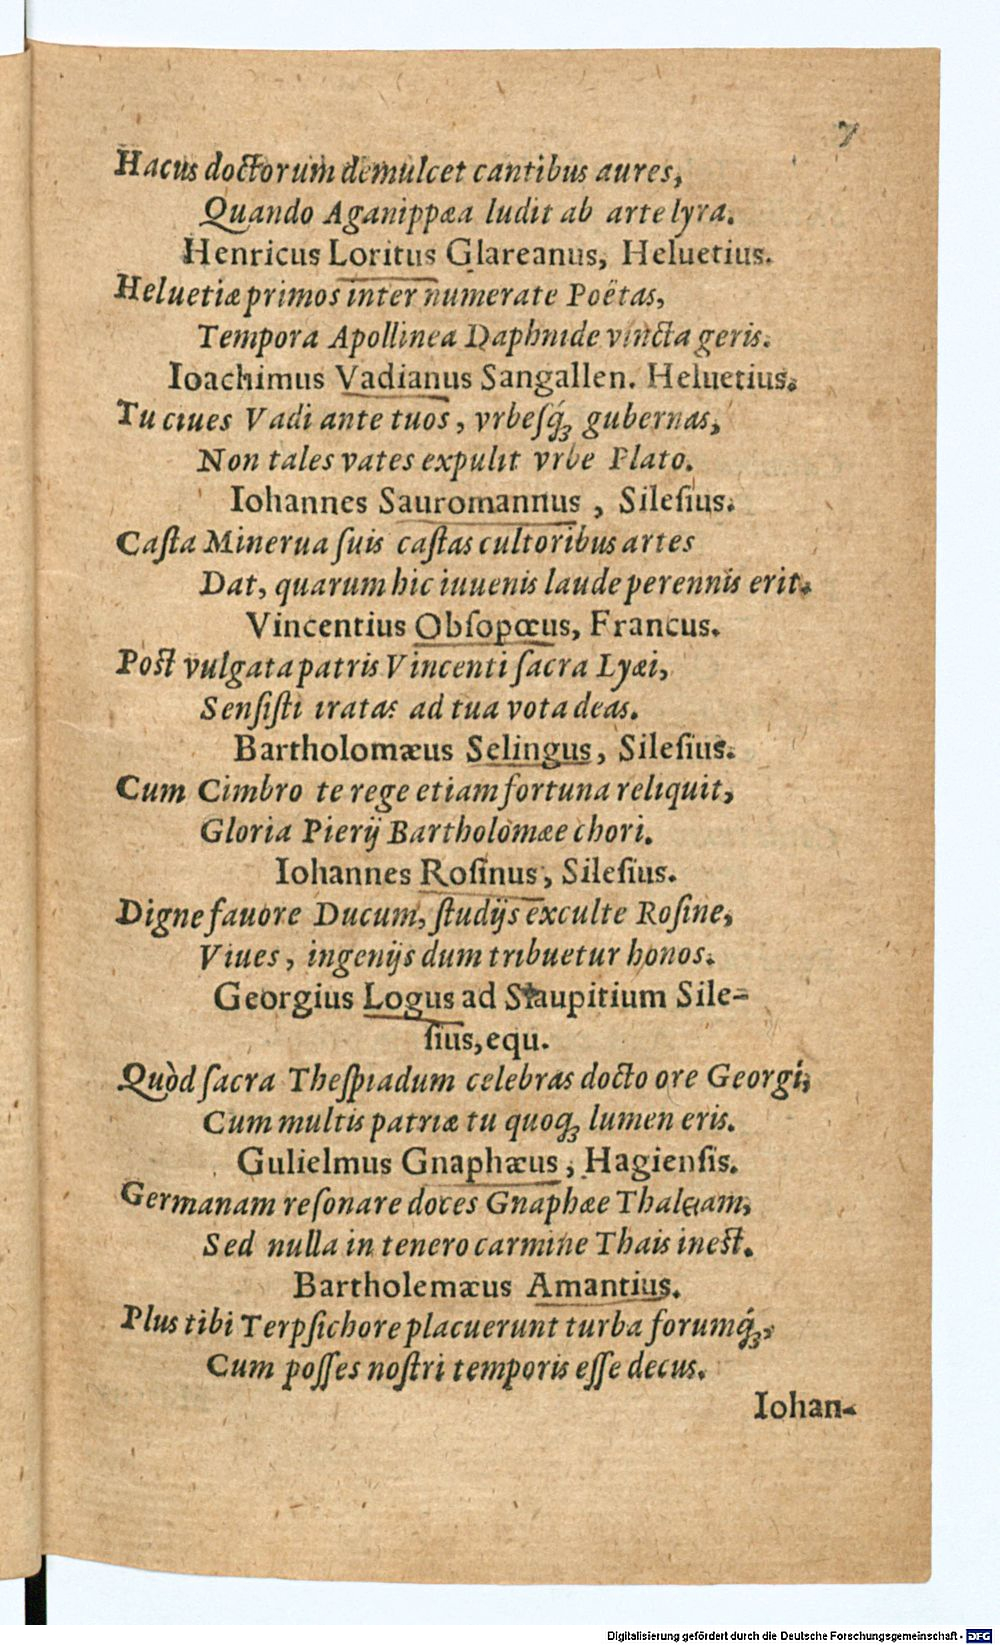 7
Hacus doctorum demulcet cantibus aures,
Quando Aganippæa ludit ab arte lyra.
Henricus Loritus Glareanus, Heluetius.
Heluetiæ primos inter numerate Poëtas,
Tempora Apollinea Daphnide vincta geris.
Ioachimus Vadianus Sangallen. Heluetius.
Tu ciues Vadi ante tuos, vrbeſq́ꝫ gubernas,
Non tales vates expulit vrbe Plato.
Iohannes Sauromannus, Sileſius.
Caſta Minerua ſuis caſtas cultoribus artes
Dat, quarum hic iuuenis laude perennis erit.
Vincentius Obſopœus, Francus.
Poſt vulgata patris Vincenti ſacra Lyæi,
Senſiſti iratas ad tua vota deas.
Bartholomæus Selingus, Sileſius.
Cum Cimbro te rege etiam fortuna reliquit,
Gloria Pierĳ Bartholomæe chori.
Iohannes Roſinus, Sileſius.
Digne fauore Ducum, ſtudĳs exculte Roſine,
Viues, ingenĳs dum tribuetur honos.
Georgius Logus ad Staupitium Sile-
ſius, equ.
Quòd ſacra Theſpiadum celebras docto ore Georgi,
Cum multis patriæ tu quoqꝫ lumen eris.
Gulielmus Gnaphæus, Hagienſis.
Germanam reſonare doces Gnaphæe Thaleiam,
Sed nulla in tenero carmine Thais ineſt.
Bartholemæus Amantius.
Plus tibi Terpſichore placuerunt turba forumq́ꝫ,
Cum poſſes noſtri temporis eſſe decus.
Iohan-
Digitalisierung gefördert durch die Deutsche Forschungsgemeinschaft - DFG